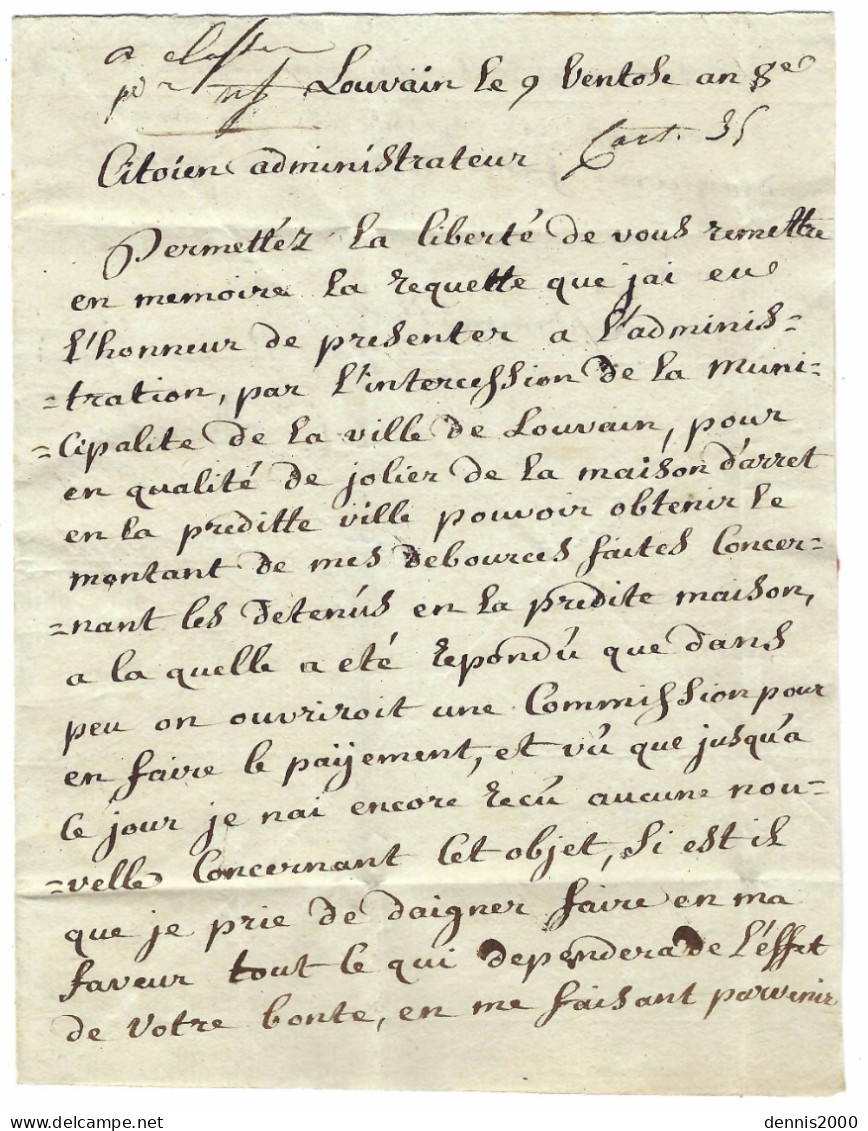 a classer
Louvain le 9 Ventose an 8e
Cart. 35
Citoien administrateur
Permettéz la liberté de vous remettre
en memoire la requette que jai eu
l'honneur de presenter a l'adminis=
=tration, par l'intercession de la muni=
=cipalite de la ville de Louvain, pour
en qualité de jolier de la maison d'arret
en la preditte ville pouvoir obtenir le
montant de mes debources faites concer=
=nant les detenûs en la predite maison,
a la quelle a eté repondû que dans
peu on ouvriroit une Commission pour
en faire le paÿement, et vû que jusqu'a
ce jour je nai encore recû aucune nou=
=velle concernant cet objet, si est il
que je prie de daigner faire en ma
faveur tout ce qui dependera de l'éffet
de votre bonte, en me faisant parvenir
dennis2000